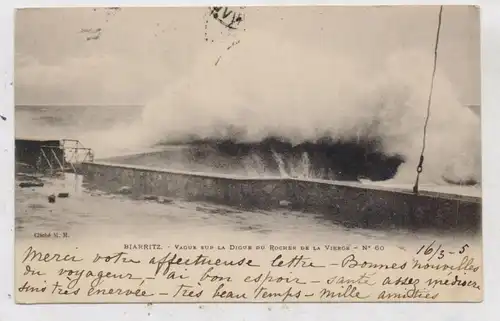 Cliché M. M.
BIARRITZ. - VAGUE SUR LA DIGUE DU ROCHER DE LA VIERGE - N° 60
16/3 - 5
Merci votre affectueuse lettre - Bonnes nouvelles
du voyageur - J'ai bon espoir - santé assez médiocre
suis très énervée - très beau temps - Mille amitiés